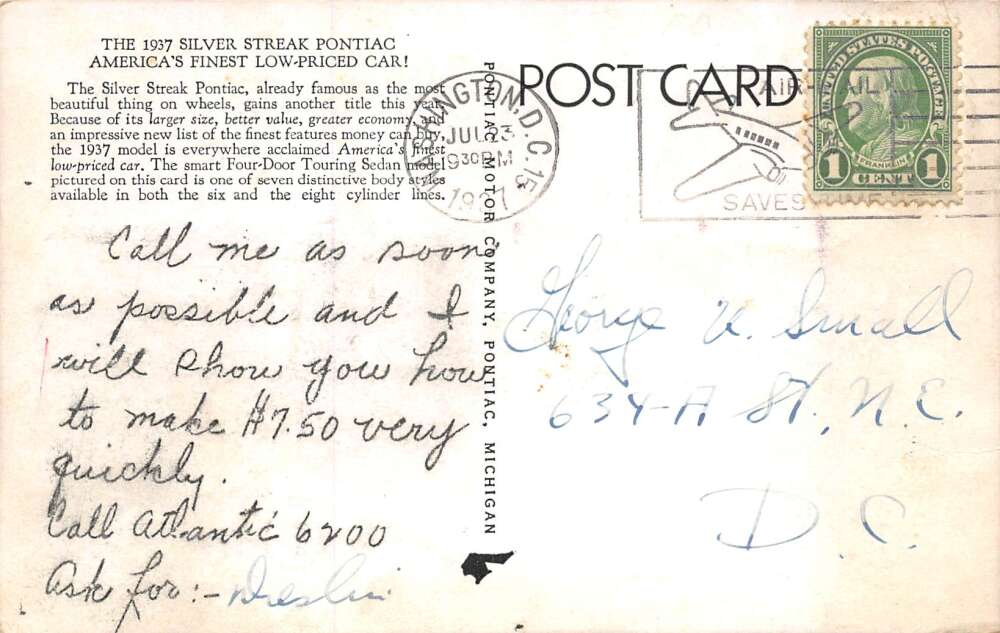 THE 1937 SILVER STREAK PONTIAC
AMERICA'S FINEST LOW-PRICED CAR!
The Silver Streak Pontiac, already famous as the most
beautiful thing on wheels, gains another title this year.
Because of its larger size, better value, greater economy, and
an impressive new list of the finest features money can buy,
the 1937 model is everywhere acclaimed America's finest
low-priced car. The smart Four-Door Touring Sedan model
pictured on this card is one of seven distinctive body styles
available in both the six and the eight cylinder lines.
Call me as soon
as possible and I
will show you how
to make $7.50 very
quickly.
Call Atlantic 6200
Ask for:-
PONTIAC MOTOR COMPANY, PONTIAC, MICHIGAN
POST CARD
WASHINGTON, D.C. 15
JUL 23
930 PM
1937
AIR MAIL
SAVES
UNITED STATES POSTAGE
FRANKLIN
1 CENT 1
George U. Small
634-A St, N.E.
D.C.